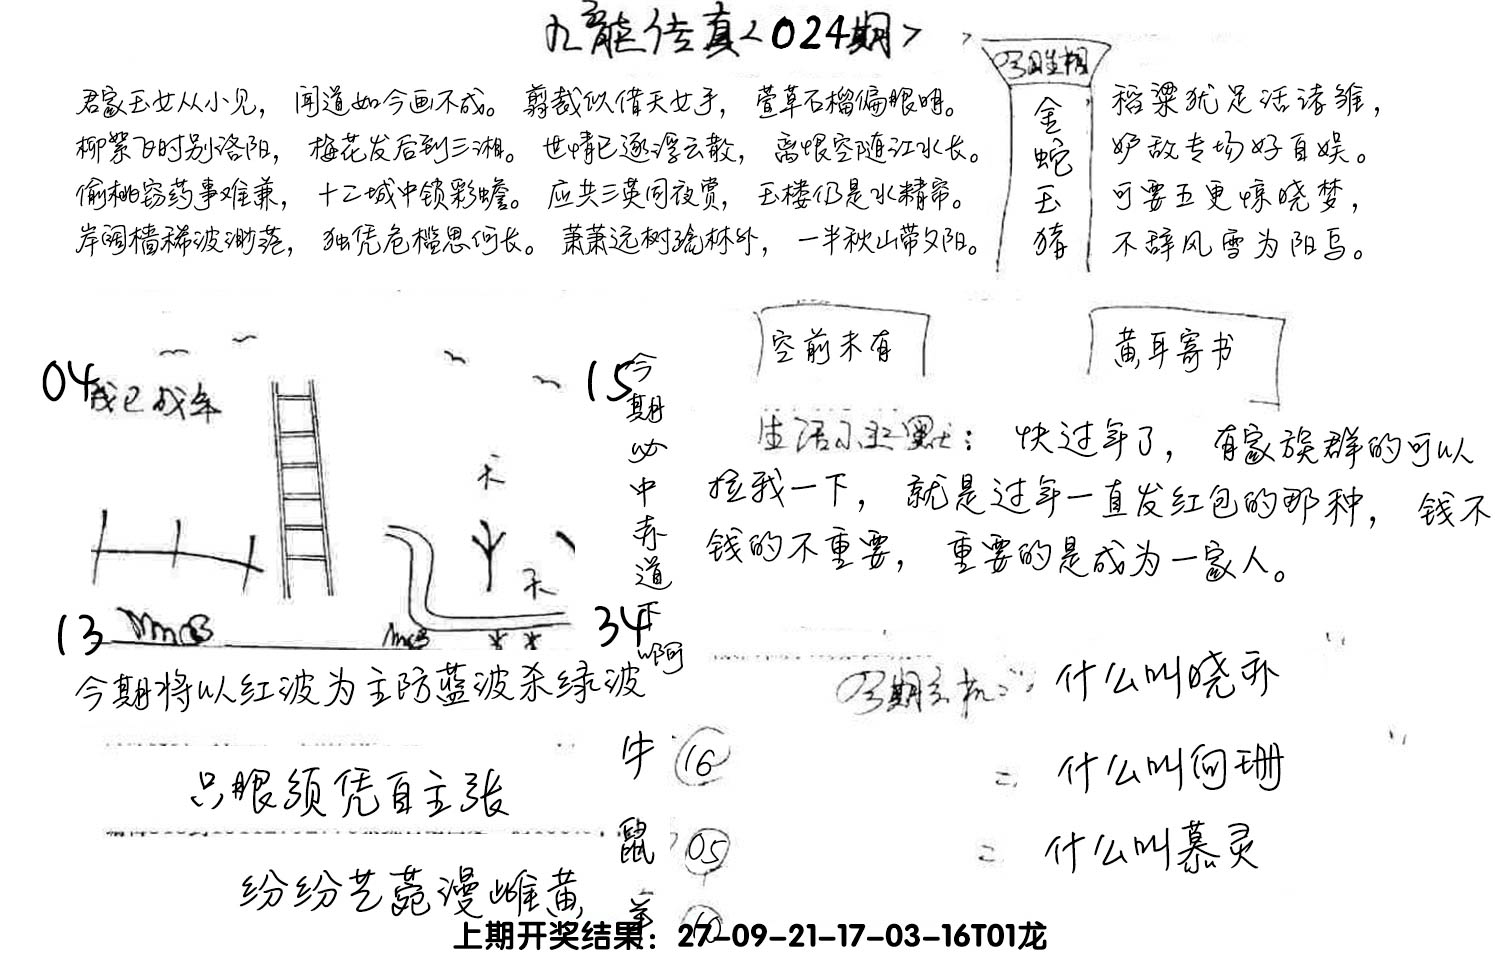 九龙传真<024期>
君家玉女从小见，闻道如今画不成。剪裁似借天女手，萱草石榴偏眼明。
柳絮飞时别洛阳，梅花发后到三湘。世情已逐浮云散，离恨空随江水长。
偷桃窃药事难兼，十二城中锁彩蟾。应共三英同夜赏，玉楼仍是水精帘。
岸阔樯稀波渺茫，独凭危槛思何长。萧萧远树疏林外，一半秋山带夕阳。
今期生相
金蛇玉猪
稻粱犹足活诸雏，
妒敌专场好自娱。
可要五更惊晓梦，
不辞风雪为阳乌。
空前未有
黄耳寄书
04
我已成年
15
今期必中赤道下啊
天
天
13
34
生活小幽默：快过年了，有家族群的可以
拉我一下，就是过年一直发红包的那种，钱不
钱的不重要，重要的是成为一家人。
今期将以红波为主防蓝波杀绿波
今期玄机：什么叫晓乔
什么叫向珊
什么叫慕灵
只眼须凭自主张
纷纷艺苑漫雌黄
牛 16
鼠 05
羊 10
上期开奖结果：27-09-21-17-03-16T01龙